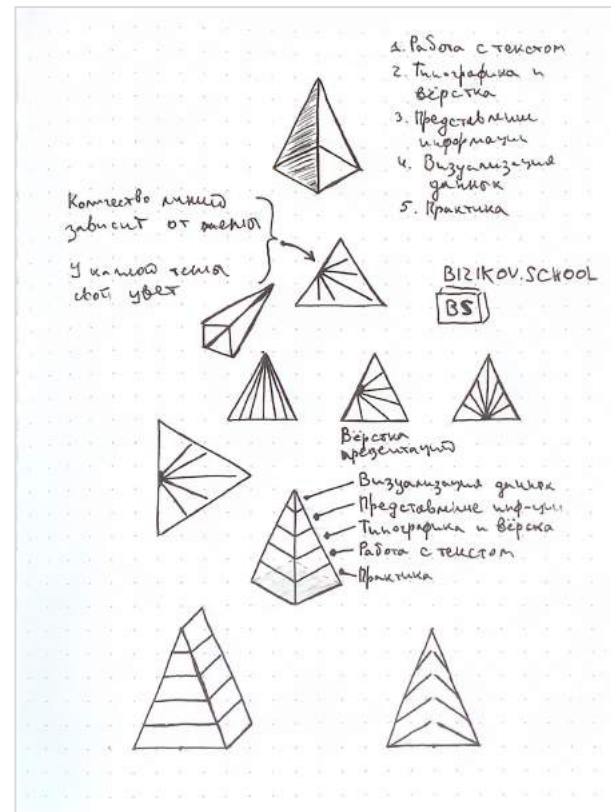 1. Работа с текстом
2. Типографика и
вёрстка
3. Представление
информации
4. Визуализация
данных
5. Практика
Количество линий
зависит от темы
У каждой темы
свой цвет
BIZIKOV.SCHOOL
BS
Вёрстка
презентаций
Визуализация данных
Представление инф-ции
Типографика и вёрска
Работа с текстом
Практика